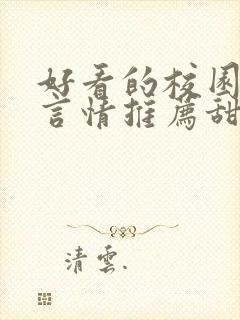 好看的校园
言情推荐甜
清雲.